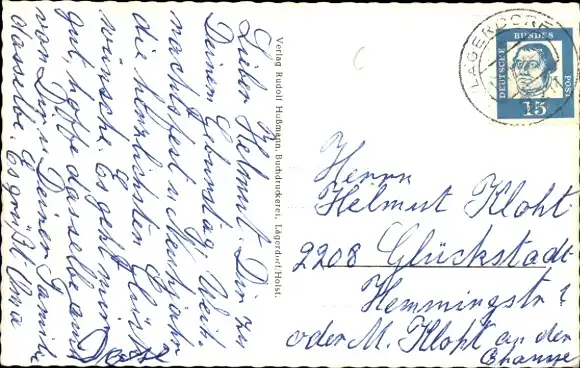 Lieber Helmut! Dir zu
Deinem Geburtstag, Weih-
nachtsfest u. Neujahr
die herzlichsten Glück-
wünsche. Es geht mir
gut, hoffe dasselbe auch
von Dir u. Deiner Familie
dasselbe
Es grüßt Oma
Verlag Rudolf Hußmann, Buchdruckerei, Lägerdorf/Holst.
LÄGERDORF
DEUTSCHE BUNDES POST
15
Herrn
Helmut Kloht
2208 Glückstadt
Hemmingstr ?
oder M. Kloht an der
Chausse